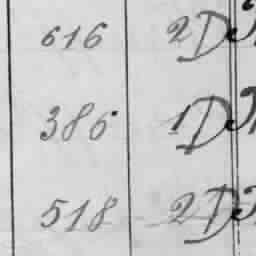 616 2 De
386 1 De
518 2 De